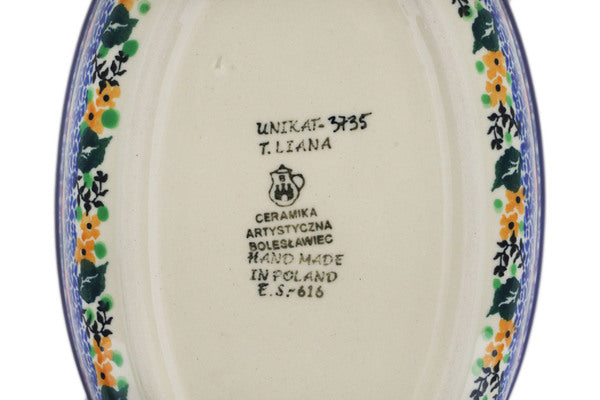 UNIKAT-3735
T. LIANA
B
CERAMIKA
ARTYSTYCZNA
BOLESŁAWIEC
HAND MADE
IN POLAND
E.S.-616